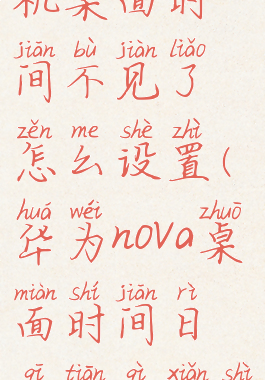 机桌面时
jiān bù jiàn liǎo
间不见了
zěn me shè zhì
怎么设置(
huá wéi zhuō
华为nova桌
miàn shí jiān rì
面时间日
qī tiān qì xiǎn shì